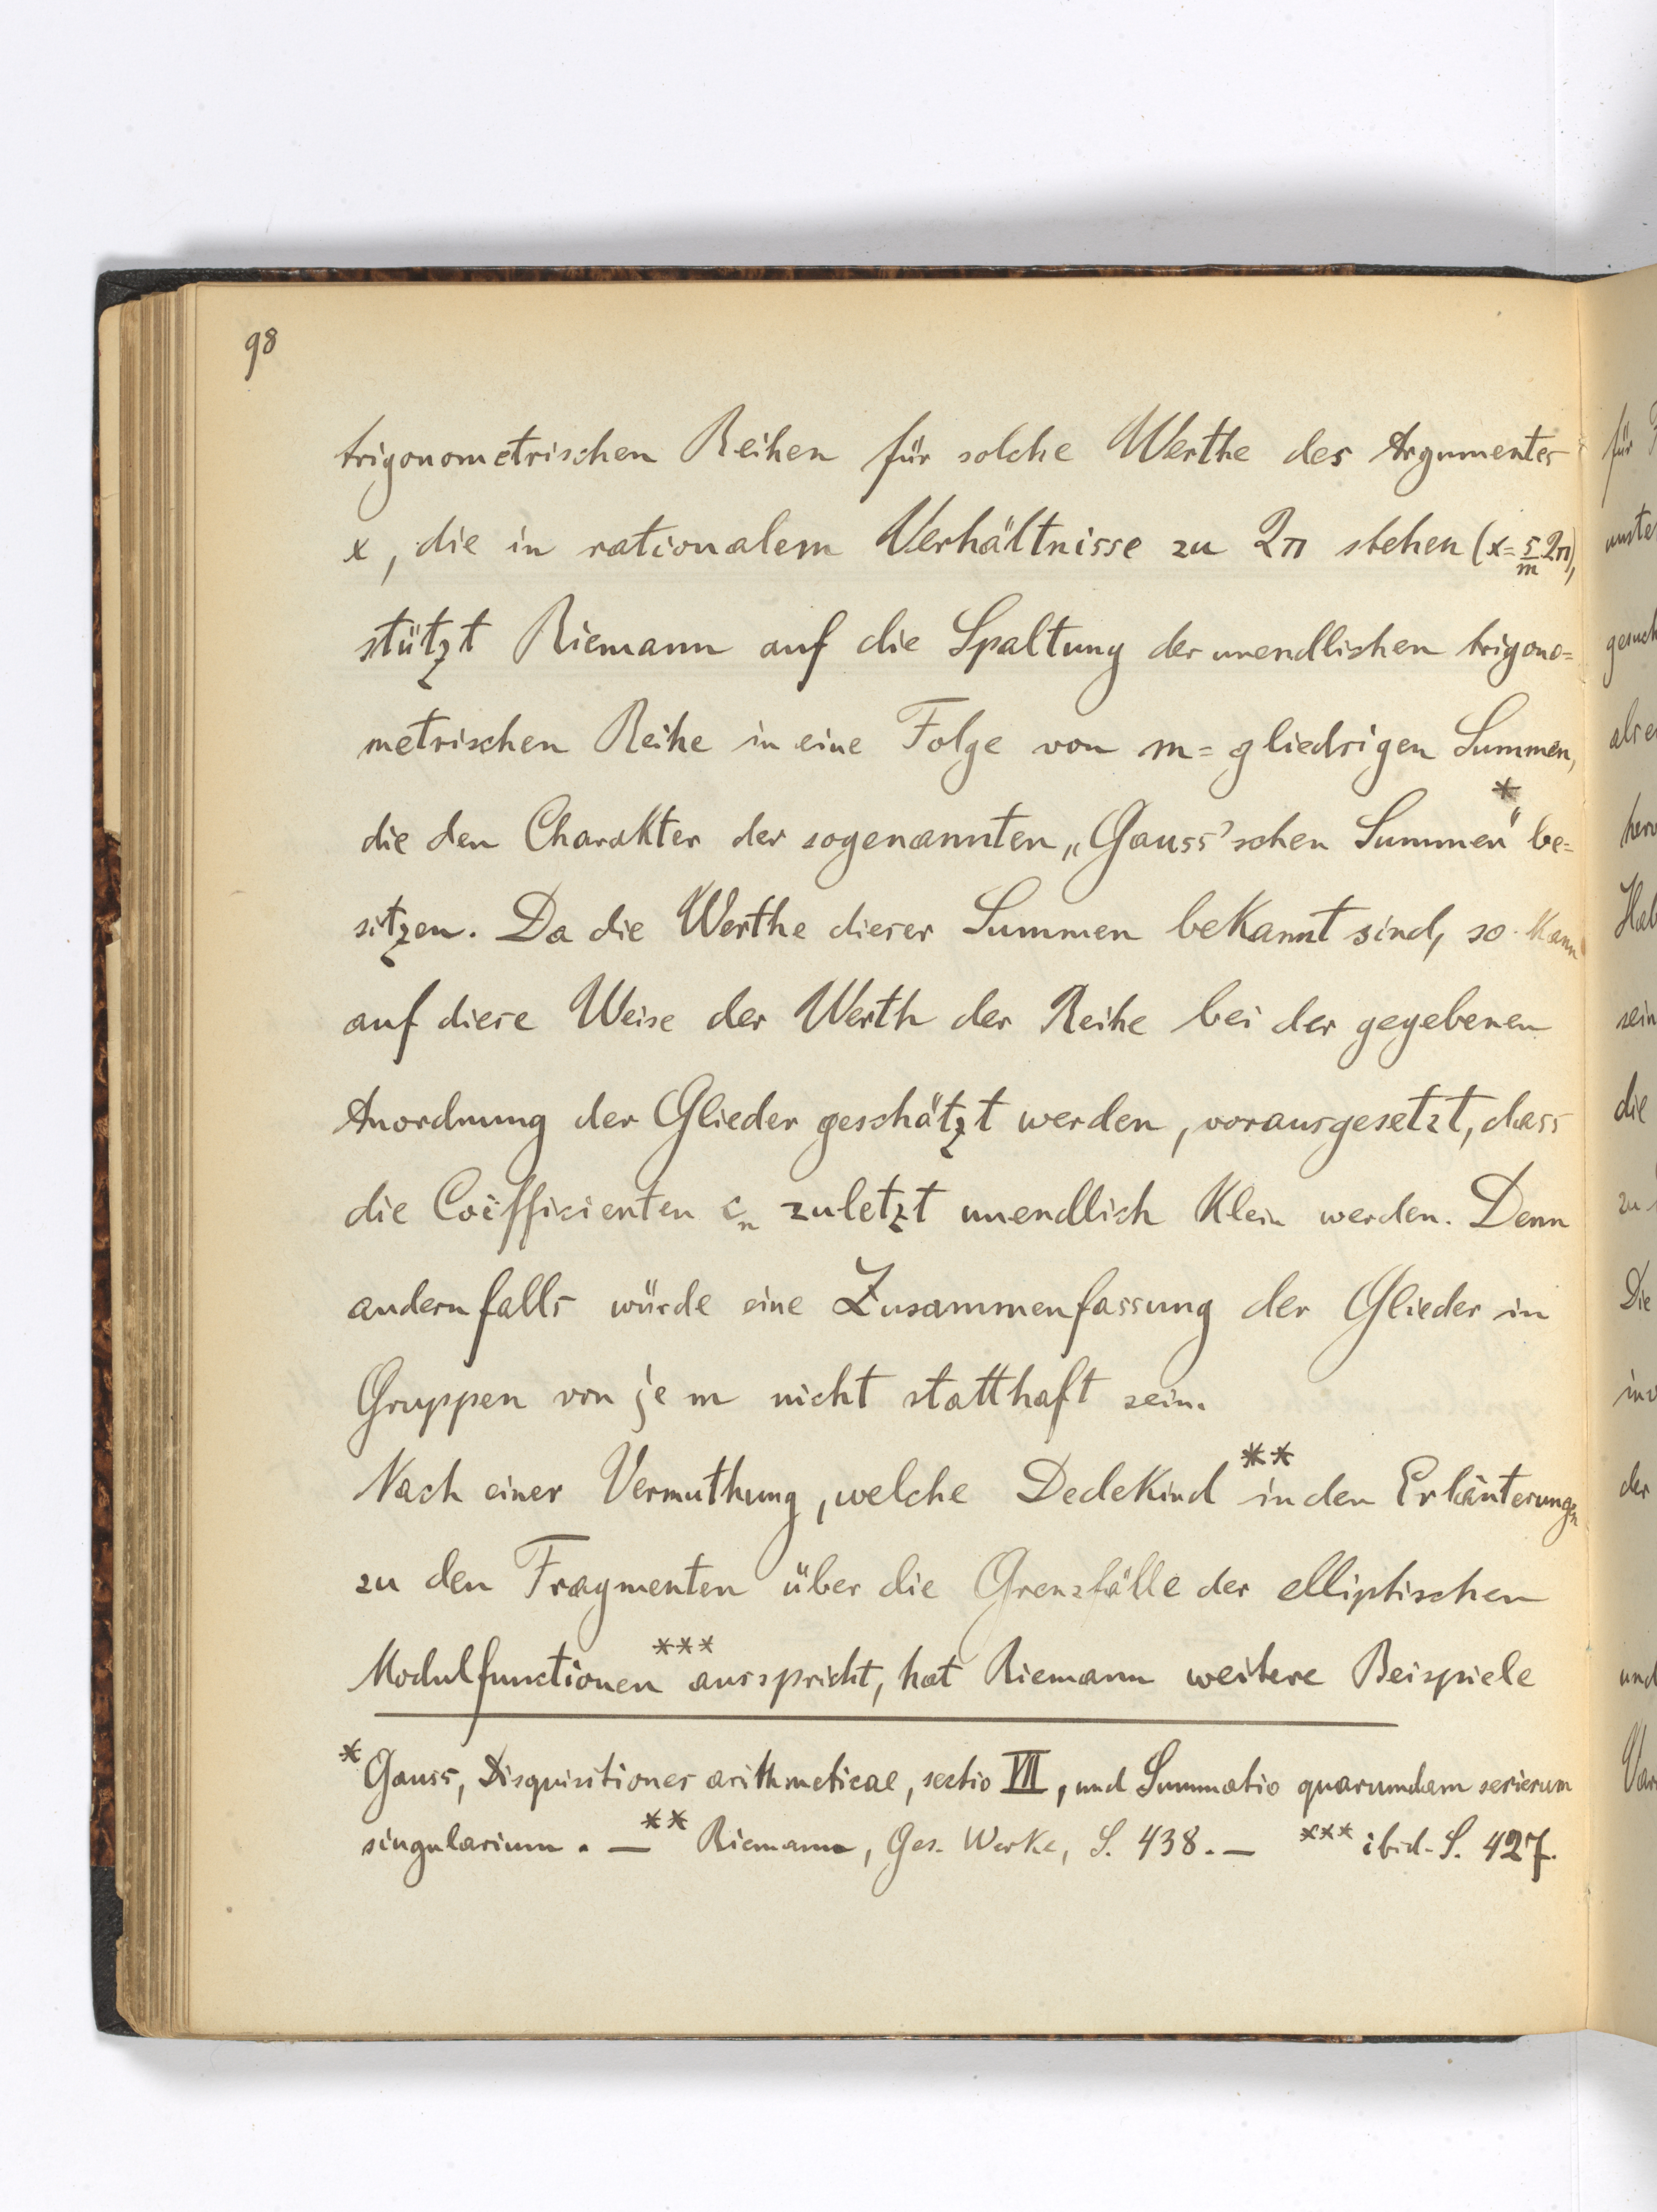 98
trigonometrischen Reihen für solche Werthe des Argumentes
x, die in rationalem Verhältnisse zu 2π stehen (x = s/m 2π),
stützt Riemann auf die Spaltung der unendlichen trigono=
metrischen Reihe in eine Folge von m=gliedrigen Summen,
die den Charakter der sogenannten „Gauss'schen Summen"* be=
sitzen. Da die Werthe dieser Summen bekannt sind, so kann
auf diese Weise der Werth der Reihe bei der gegebenen
Anordnung der Glieder geschätzt werden, vorausgesetzt, dass
die Coëfficienten cₙ zuletzt unendlich klein werden. Denn
andernfalls würde eine Zusammenfassung der Glieder in
Gruppen von je m nicht statthaft sein.
Nach einer Vermuthung, welche Dedekind ** in den Erläuterungen
zu den Fragmenten über die Grenzfälle der elliptischen
Modulfunctionen *** ausspricht, hat Riemann weitere Beispiele
* Gauss, Disquisitiones arithmeticae, sectio VII, und Summatio quarumdam serierum
singularium. — ** Riemann, Ges. Werke, S. 438. — *** ibid. S. 427.
für
gesuch
sein
die
zu
Die
der
und